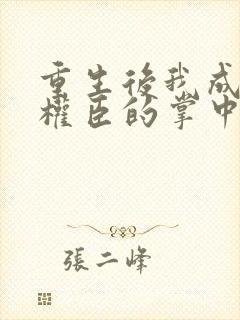 重生後我成
權臣的掌中
張二峰